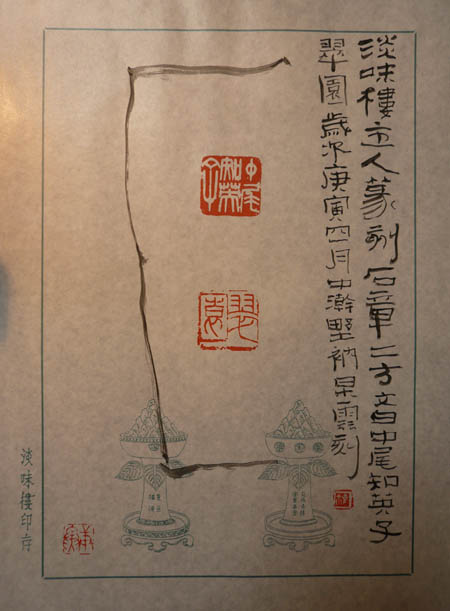 淡味樓主人篆刻石章二方文曰中尾知英子
翠園歲次庚寅四月中澣墅衲杲雲刻
中尾知英子
翠園
淡味樓印存